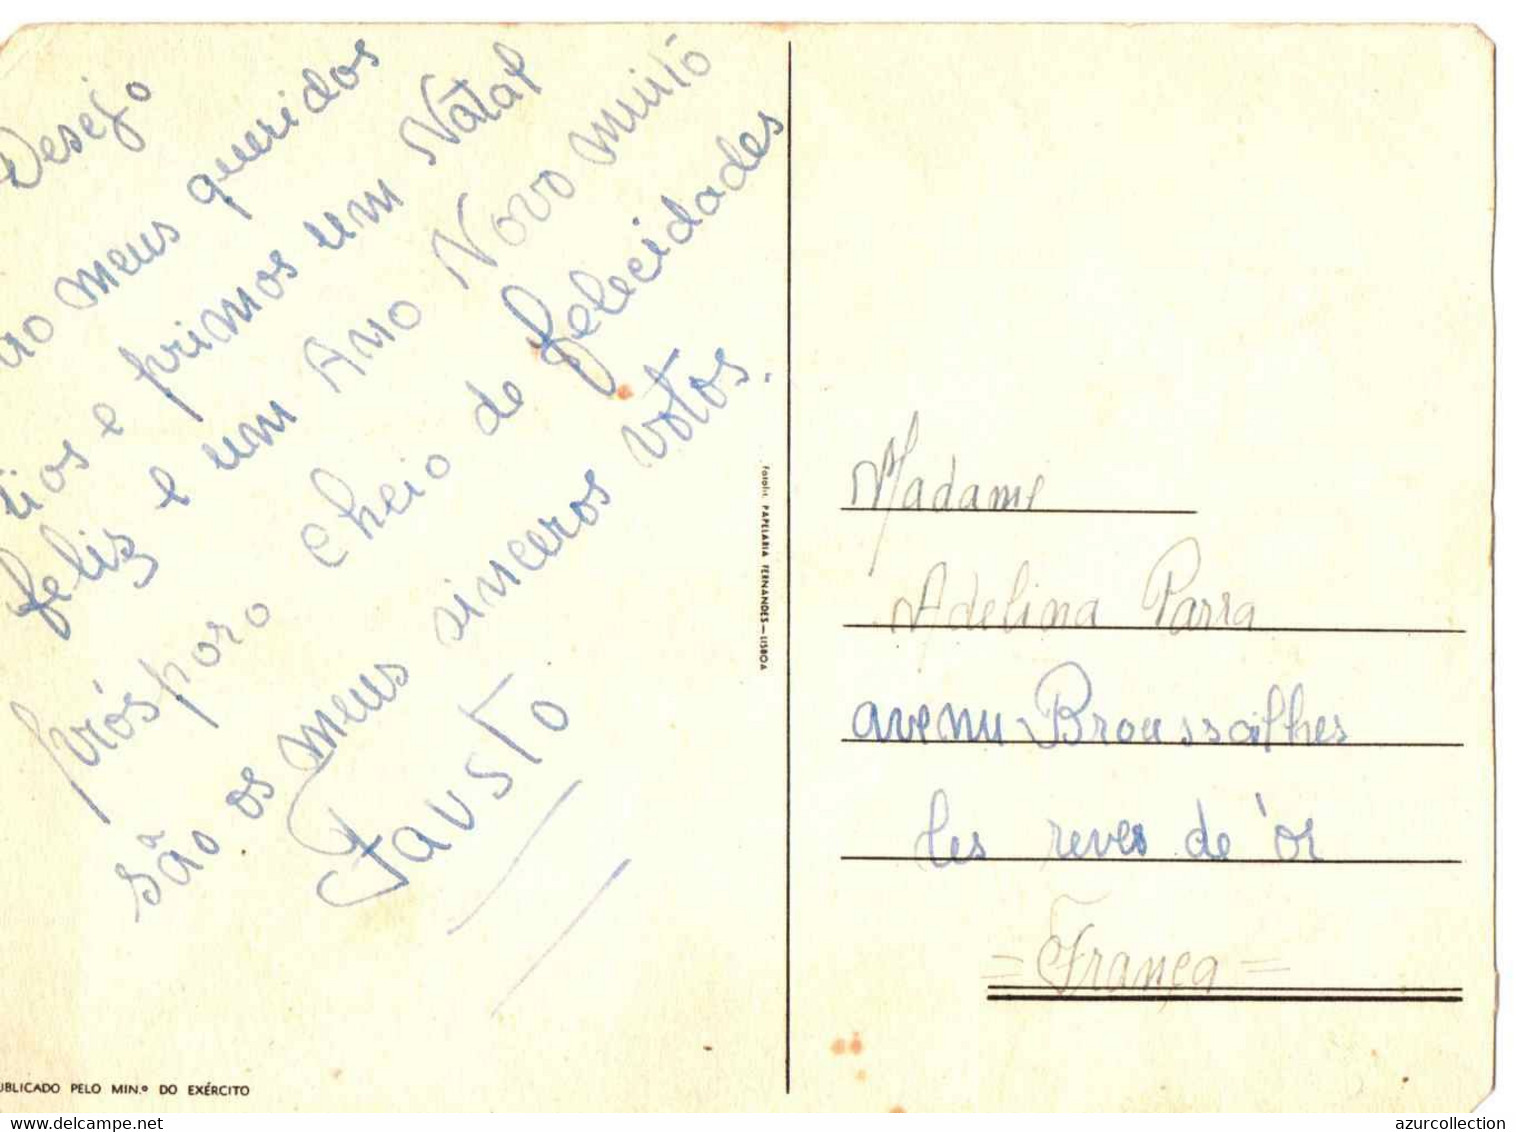 Desejo
ao meus queridos
tios e primos um Natal
feliz e um Ano Novo muito
próspero cheio de felecidades
são os meus sinceros votos.
Fausto
Fotolit. PAPELARIA FERNANDES—LISBOA
UBLICADO PELO MIN.º DO EXÉRCITO
Madame
Adelina Parra
avenu Broussailhes
les reves de 'or
= França =
azurcollection